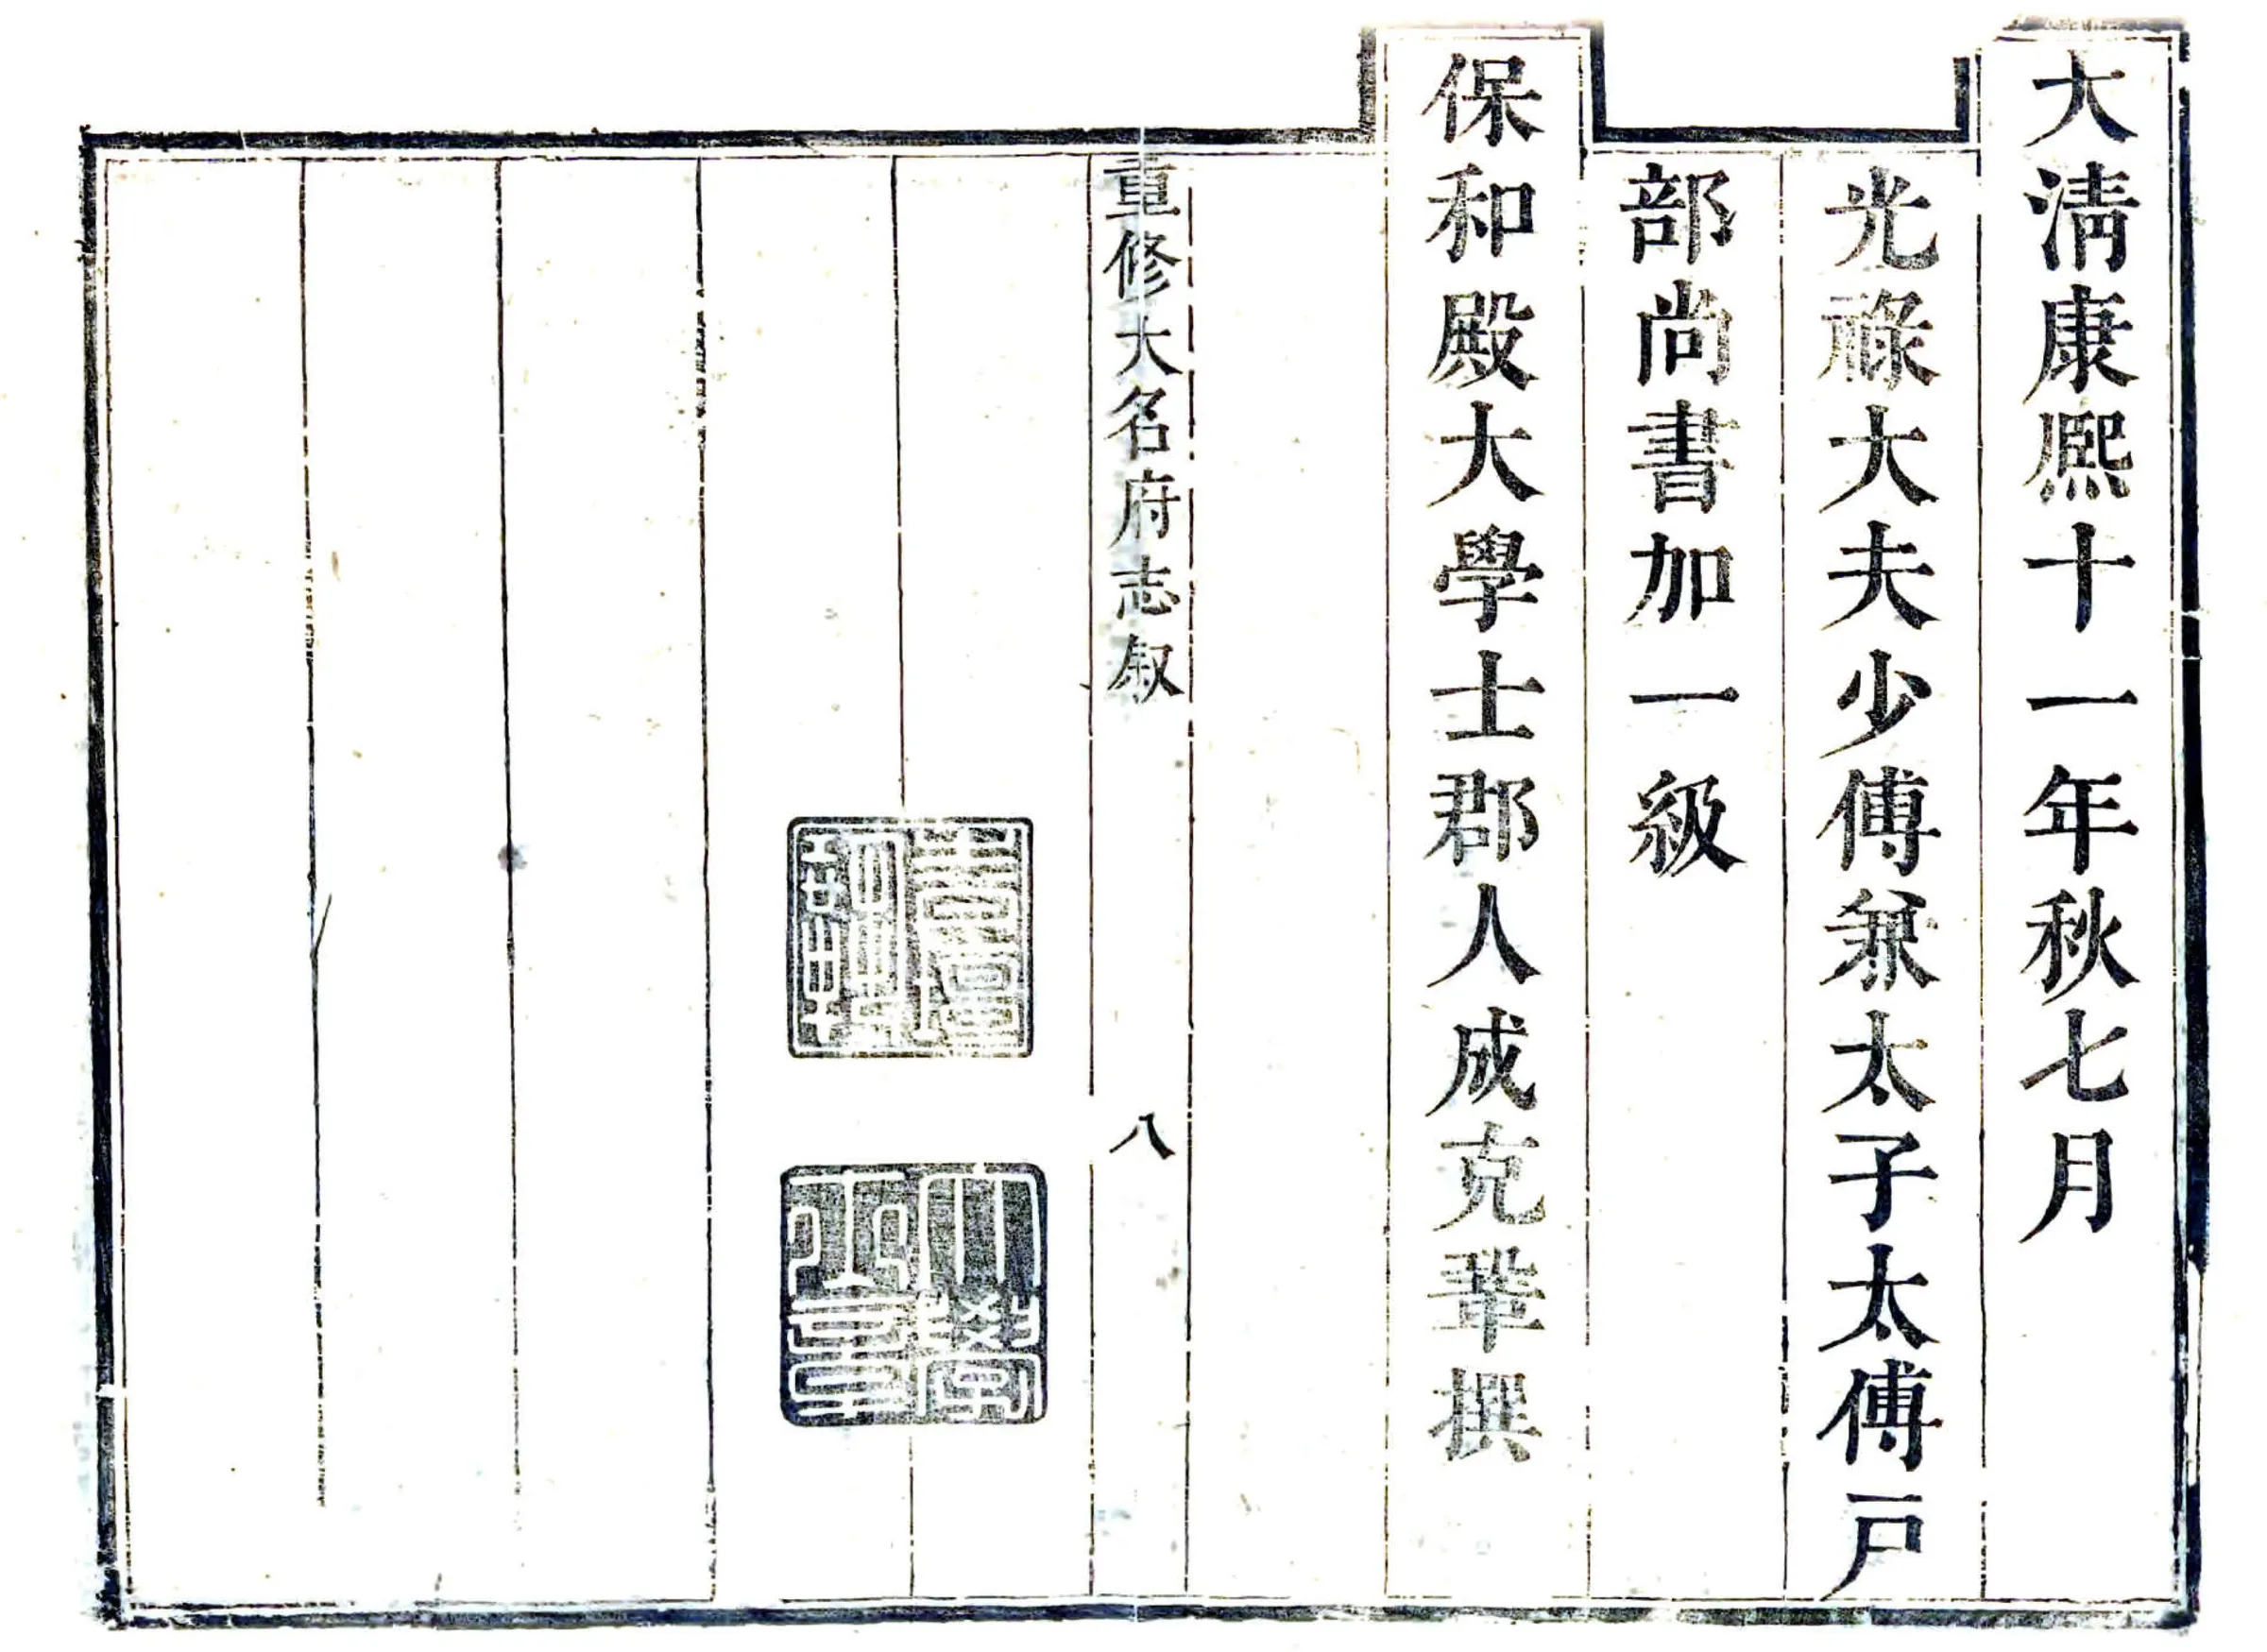 大清康熙十一年秋七月
光祿大夫少傅兼太子太傅戶
部尚書加一級
保和殿大學士郡人成克鞏撰
重修大名府志叙
八
大學士章